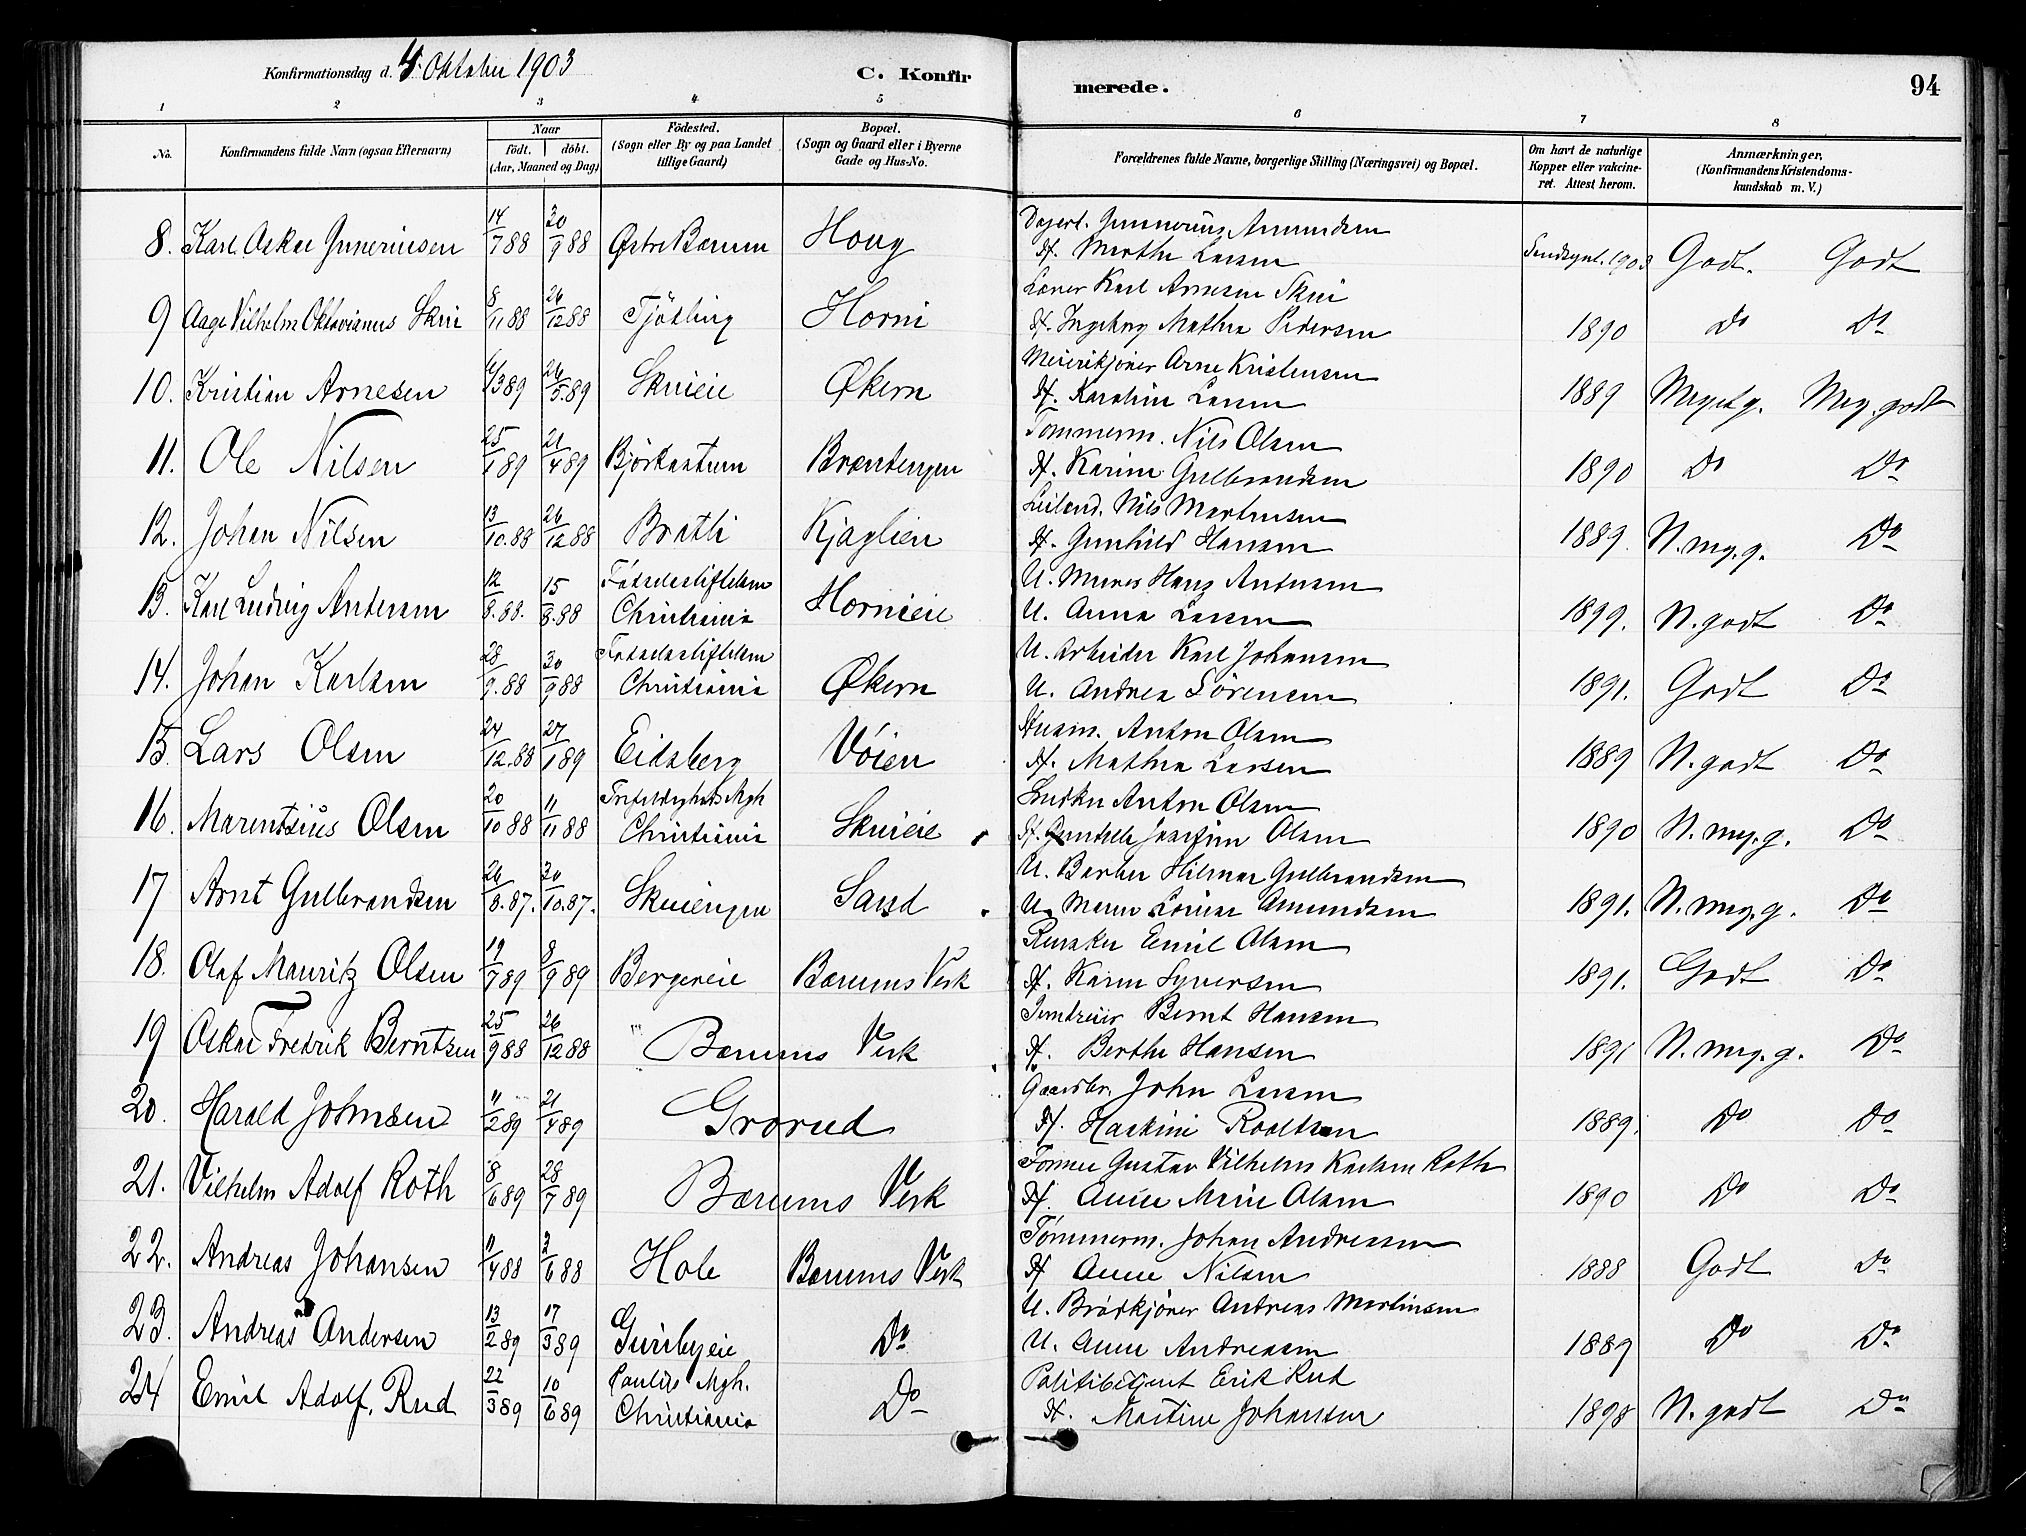 Konfirmationsdag d. 4 Oktober 1903
C. Konfirmerede.
94
1 2 3 4 5 6 7 8
No.
Konfirmandens fulde Navn (ogsaa Efternavn)
Naar
födt. döbt.
(Aar, Maaned og Dag)
Födested.
(Sogn eller By og paa Landet tillige Gaard)
Bopæl.
(Sogn og Gaard eller i Byerne Gade og Hus-No.
Forældrenes fulde Navne, borgerlige Stilling (Næringsvei) og Bopæl.
Om havt de naturlige Kopper eller vakcineret. Attest herom.
Anmærkninger.
(Konfirmandens Kristendomskundskab m. V.)
8. Karl Oskar Guneriusen 14/7 88 30/9 88 Østre Bærum Haug
Gunnerius Amundsen
H. Marthe Larsen 1903 Godt. Godt
9 Aage Vilhelm Oktavianus Skui 8/11 88 26/12 88 Horni
Karl Arnesen Skui
H. Ingeborg Mathea Pedersen 1890 Do Do
10. Kristian Arnesen 6/3 89 26/5 89 Skuieie Økern
Meierikjörer Arne Kristensen
H. Karoline Larsen 1889 Meget g. Meg. godt
11. Ole Nilsen 25/1 89 21/4 89 Bjørkastuen Bræntengen
Tommerm. Nils Olsen
H. Karine Gulbrandsen 1890 Do Do
12. Johan Nilsen 13/10 88 26/12 88 Bratli Kjaglien
Leilend. Nils Martinsen
H. Gunhild Hansen 1889. N. meg. g. Do
13. Karl Ludvig Antonsen 12/8. 88. 15/8. 88 Födselsstiftelsen Christiania Hornieie
U. Murer Hans Antonsen
U. Anna Larsen 1899. N. godt Do
14. Johan Karlsen 28/9. 88 30/9 88 Födselsstiftelsen Christiania Økern
U. Arbeider Karl Johansen
U. Andrea Sörensen 1891. Godt Do
15. Lars Olsen 24/12. 88 27/1 89 Eidsberg Vöien
Husm. Anton Olsen
H. Mathea Larsen 1889 N. godt Do
16. Marentsius Olsen 20/10 88 11/11 88 Trefoldigheds Mgh Christiania Skuieie
Snedker Anton Olsen
H. Josefine Olsen 1890 N. meg. g. Do
17 Arnt Gulbrandsen 26/8. 87. 30/10. 87. Skuiengen Sand
U. Barber Hilmar Gulbrandsen
U. Maren Lovise Amundsen 1891. N. meg. g. Do
18. Olaf Mauritz Olsen 19/7 89 8/9 89 Bergereie Bærums Verk
Emil Olsen
H. Karen Syversen 1891. Godt Do
19 Oskar Fredrik Berntsen 25/9 88 26/12 88 Bærums Verk
Bernt Hansen
H. Berthe Hansen 1891 N. meg. g. Do
20. Harald Johnsen 11/2 89 21/4 89 Grorud
Gaardbr. John Larsen
H. Haakine Roaltsen 1889. Do Do
21. Vilhelm Adolf Roth 8/6 89 28/7 89 Bærums Verk
Former Gustav Vilhelm Karlsen Roth
H. Anne Marie Olsen 1890 Do Do
22. Andreas Johansen 11/4 88 3/6 88 Hole Bærums Verk
Tömmerm. Johan Andreasen
H Anne Nilsen 1888 Godt Do
23. Andreas Andersen 13/2 89 17/3 89 Guribyeie Do
U. Brödkjörer Andreas Martinsen
U. Anne Andreasen 1889 Do Do
24 Emil Adolf Rud 22/3 89 10/6 89 Paulus Mgh. Christiania Do
Politibetjent Erik Rud
H. Martine Johansen 1898 N. godt Do